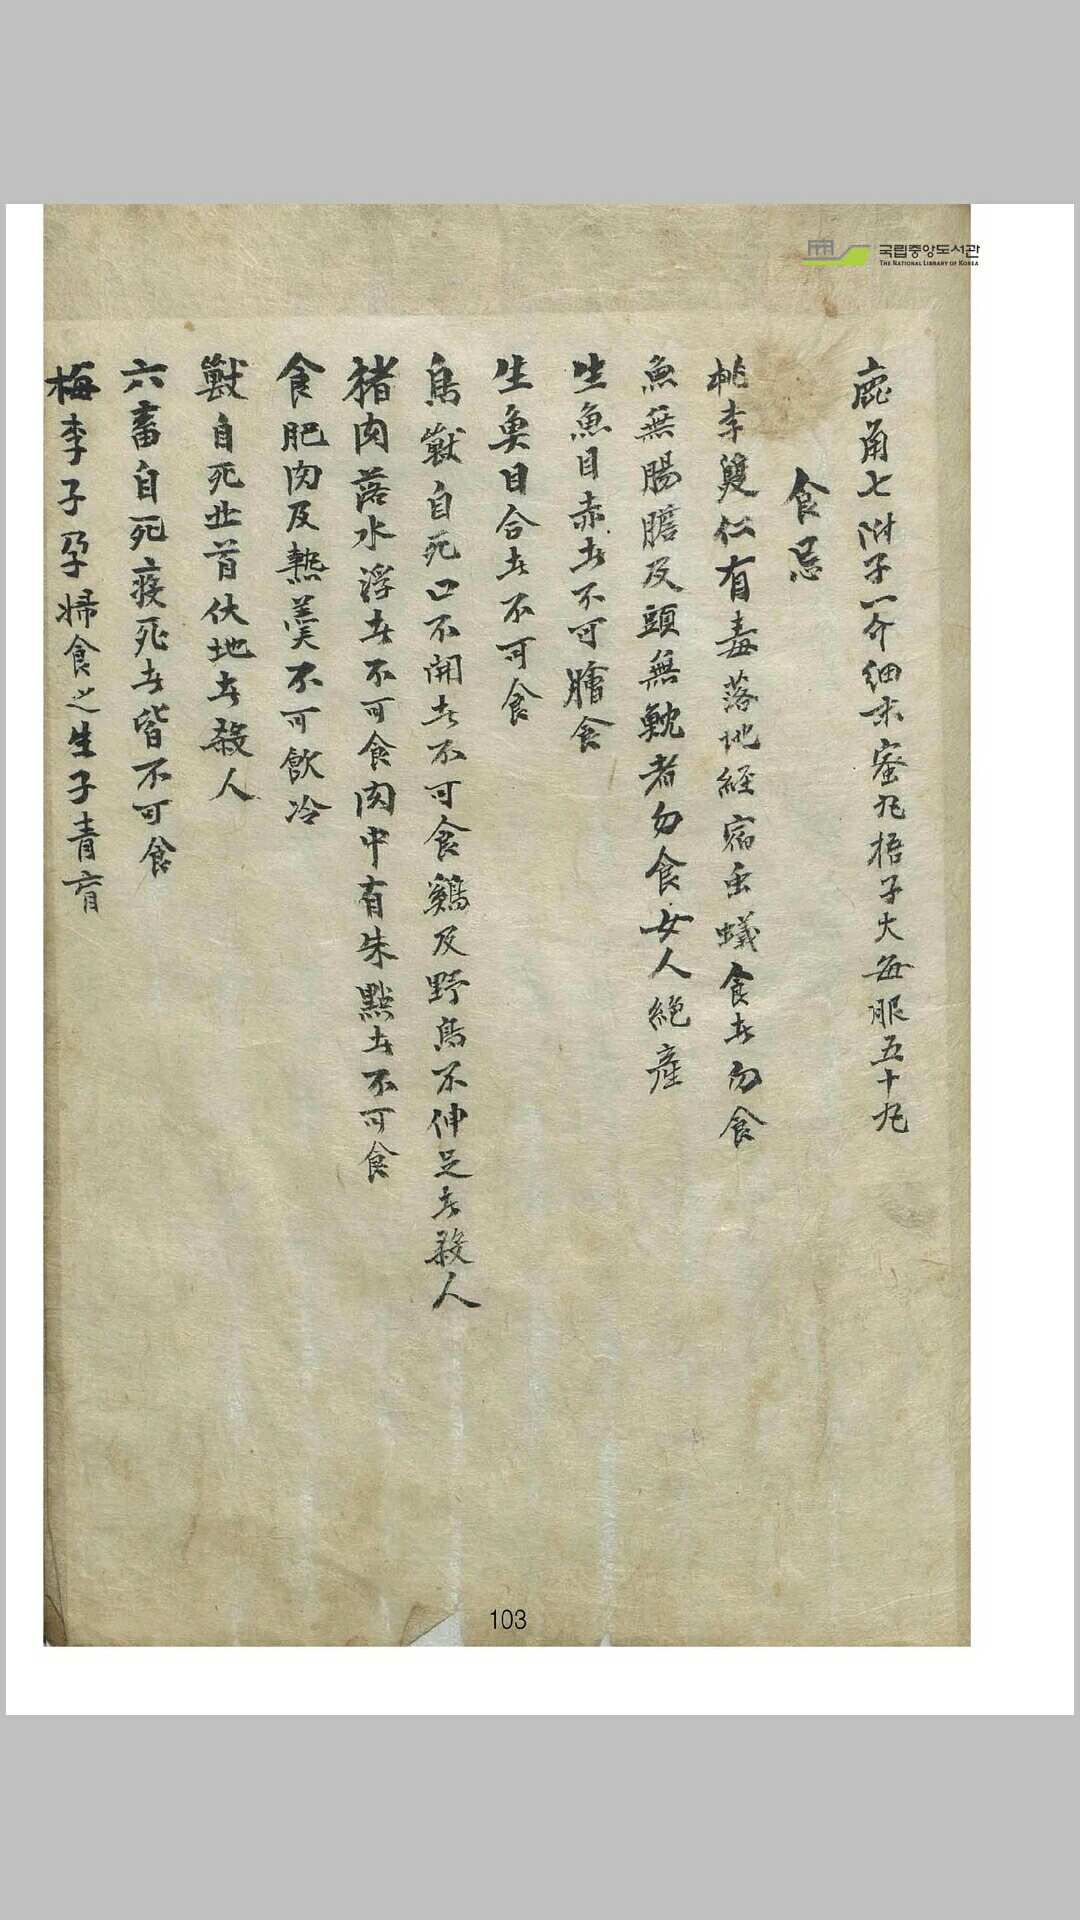 국립중앙도서관
THE NATIONAL LIBRARY OF KOREA
鹿角七附子一介細末蜜丸梧子大每服五十丸
食忌
桃李雙仁有毒落地経宿虫蟻食者勿食
魚無腸膽及頭無魫者勿食女人絶産
生魚目赤者不可膾食
生魚目合者不可食
鳥獸自死口不開者不可食鷄及野鳥不伸足者殺人
猪肉落水浮者不可食肉中有朱點者不可食
食肥肉及熱羹不可飲冷
獸自死北首伏地者殺人
六畜自死疫死者皆不可食
梅李子孕婦食之生子青盲
103